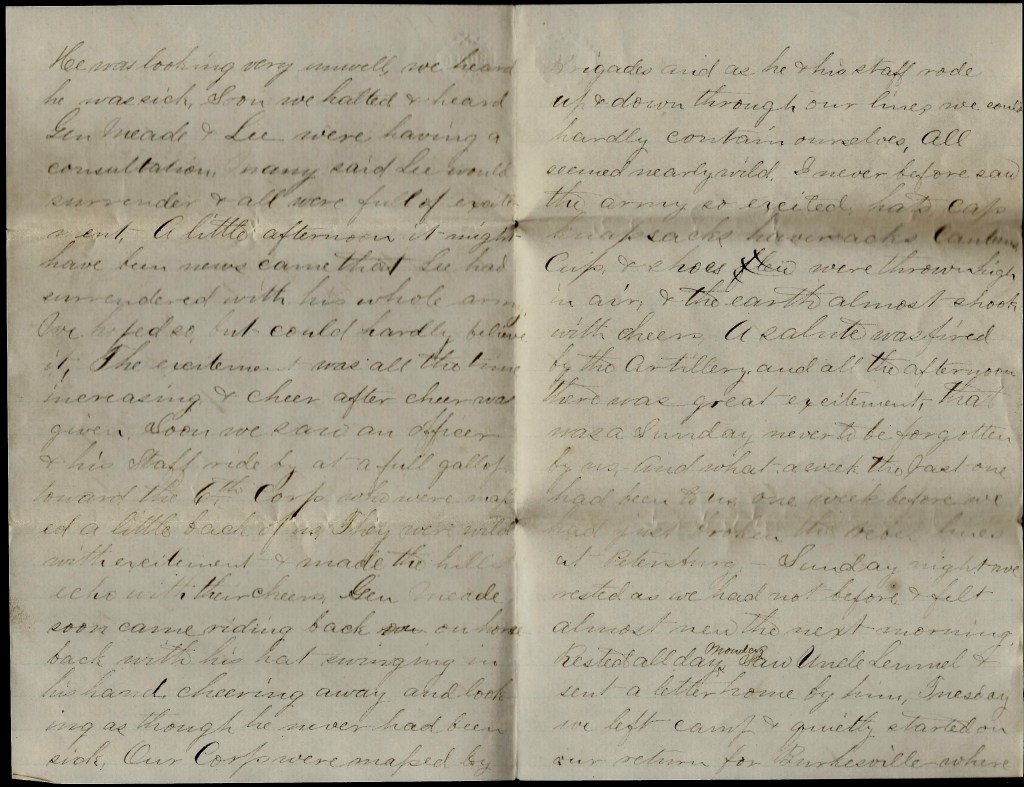 He was looking very unwell, we heard
he was sick, Soon we halted & heard
Gen Meade & Lee were having a
consultation, many said Lee would
surrender & all were full of excite
ment, A little afternoon it might
have been news came that Lee had
surrendered with his whole army
We hoped so, but could hardly believe
it, The excitement was all the time
increasing & cheer after cheer was
given. Soon we saw an officer
& his Staff ride by at a full gallop
toward the 6th Corp who were mass
ed a little back of us, They were wild
with excitement & made the hills
echo with their cheers, Gen Meade
soon came riding back on horse
back with his hat swinging in
his hand, cheering away and look
ing as though he never had been
sick, Our Corp were massed by
Brigades and as he & his staff rode
up & down through our lines we could
hardly contain ourselves, All
seemed nearly wild. I never before saw
the army so excited, hats cap
knapsacks haversacks Canteens
Cups, & shoes flew were thrown high
in air, & the earth almost shook
with cheers, A salute was fired
by the Artillery, and all the afternoon
there was great excitement, That
was a Sunday never to be forgotten
by us, And what a week the last one
had been to us, one week before we
had just broken the rebel lines
at Petersburg, – Sunday night we
rested as we had not before, & felt
almost new the next morning
Rested all day Monday Saw Uncle Lemuel &
sent a letter home by him, Tuesday
we left camp & quietly started on
our return for Burkesville where